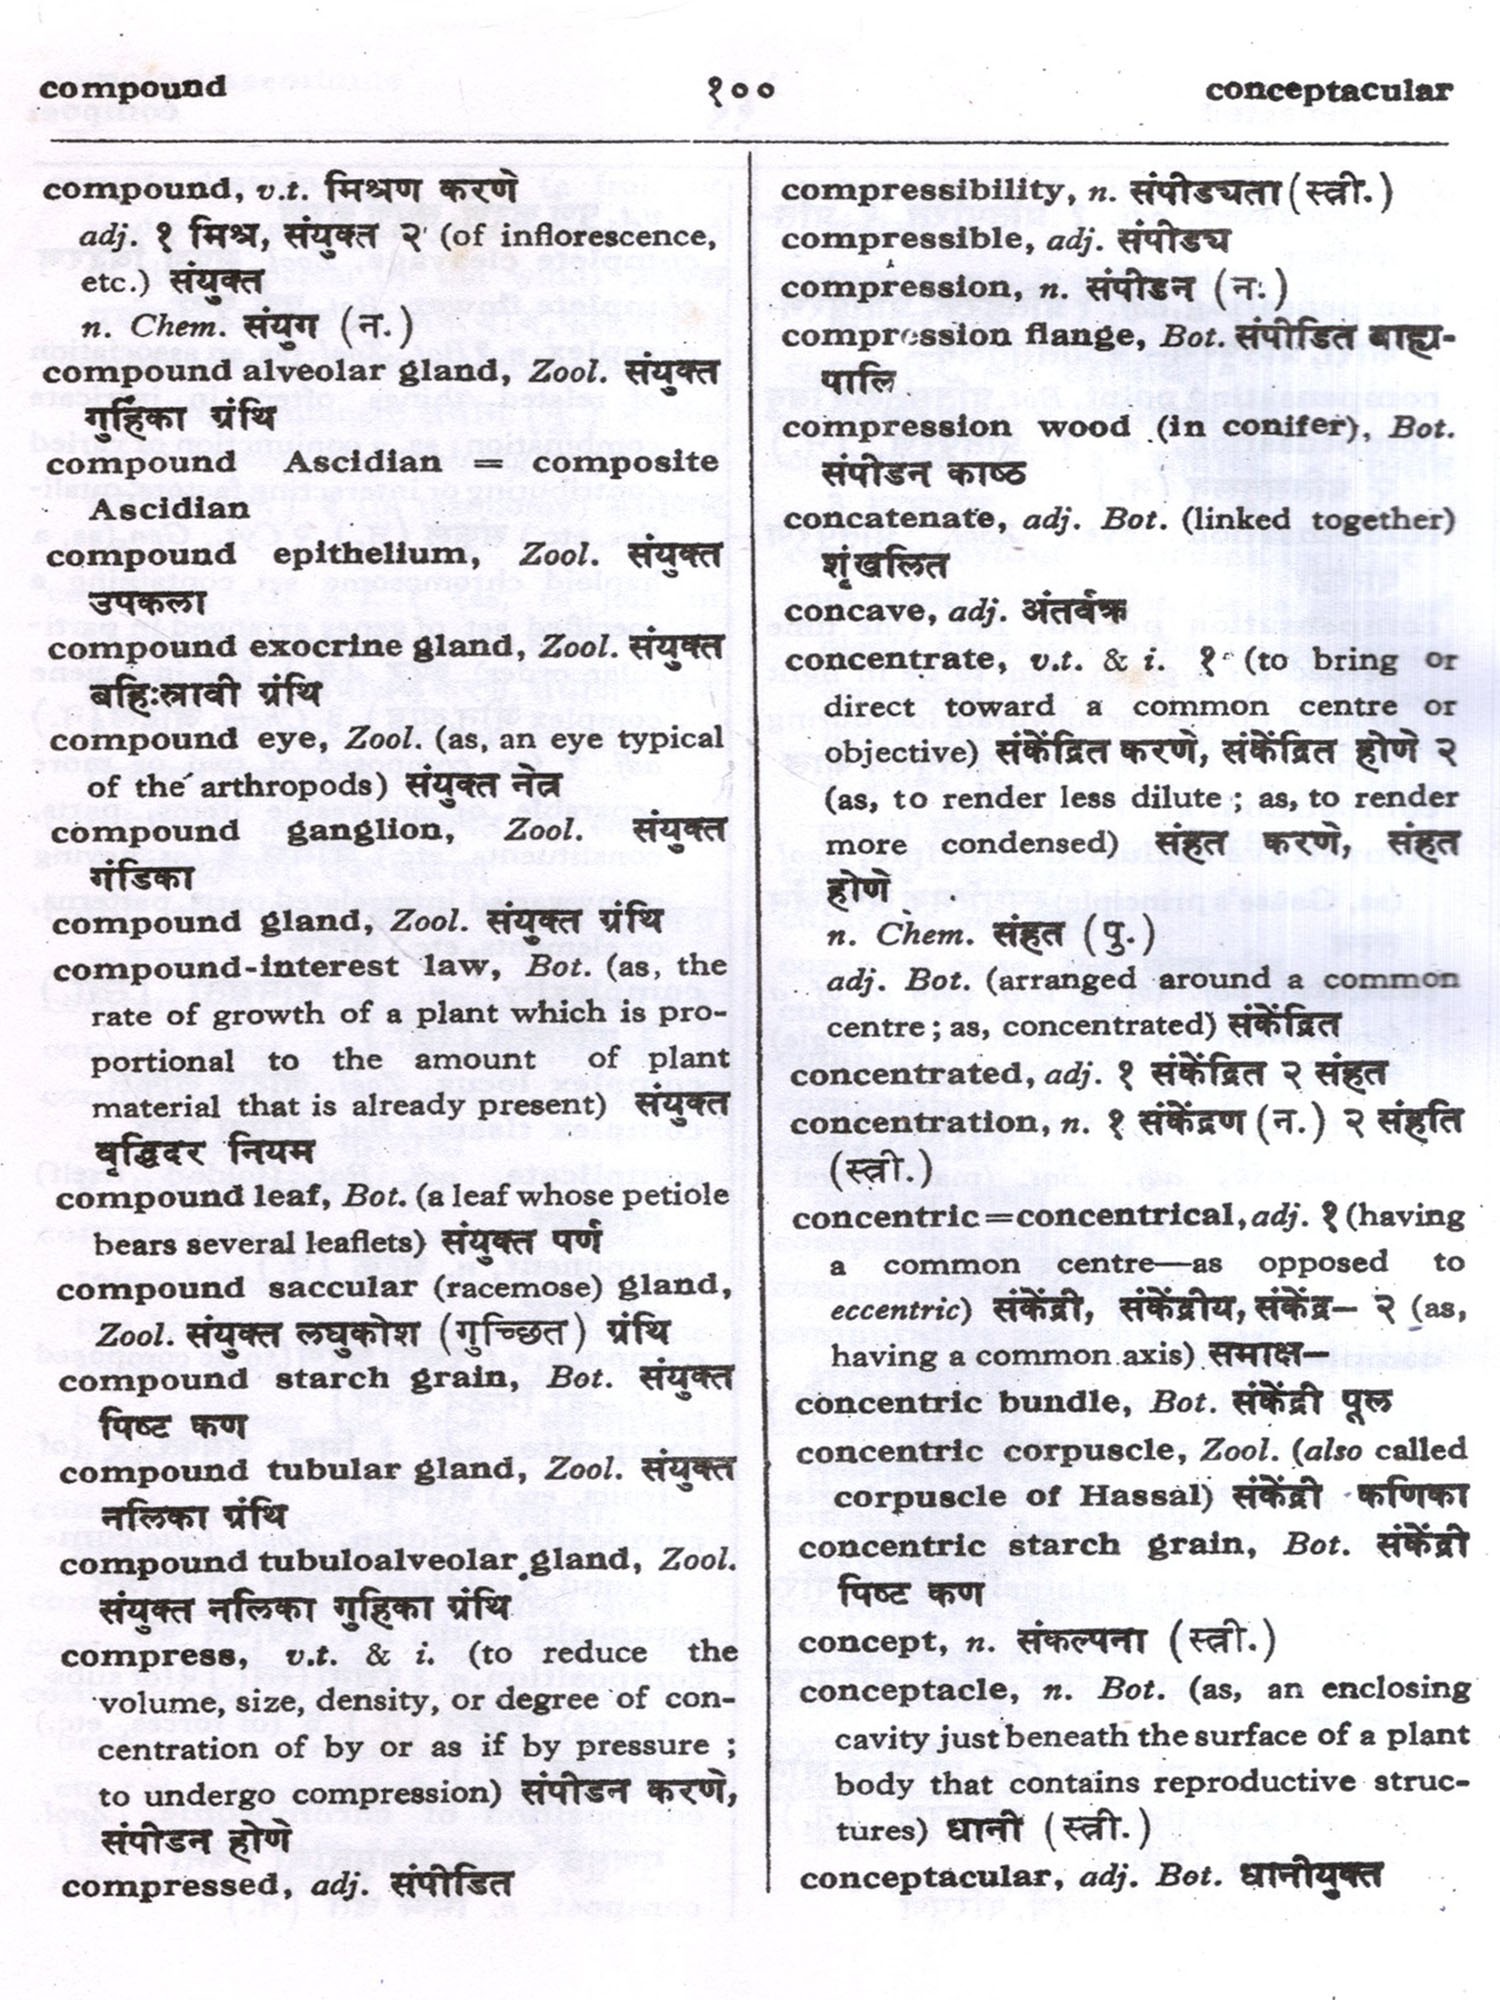 compound
१००
conceptacular
compound, v.t. मिश्रण करणे
adj. १ मिश्र, संयुक्त २ (of inflorescence,
etc.) संयुक्त
n. Chem. संयुग (न.)
compound alveolar gland, Zool. संयुक्त
गुहिका ग्रंथि
compound Ascidian = composite
Ascidian
compound epithelium, Zool. संयुक्त
उपकला
compound exocrine gland, Zool. संयुक्त
बहिःस्रावी ग्रंथि
compound eye, Zool. (as, an eye typical
of the arthropods) संयुक्त नेत्र
compound ganglion, Zool. संयुक्त
गंडिका
compound gland, Zool. संयुक्त ग्रंथि
compound-interest law, Bot. (as, the
rate of growth of a plant which is pro-
portional to the amount of plant
material that is already present) संयुक्त
वृद्धिदर नियम
compound leaf, Bot. (a leaf whose petiole
bears several leaflets) संयुक्त पर्ण
compound saccular (racemose) gland,
Zool. संयुक्त लघुकोश (गुच्छित) ग्रंथि
compound starch grain, Bot. संयुक्त
पिष्ट कण
compound tubular gland, Zool. संयुक्त
नलिका ग्रंथि
compound tubuloalveolar gland, Zool.
संयुक्त नलिका गुहिका ग्रंथि
compress, v.t. & i. (to reduce the
volume, size, density, or degree of con-
centration of by or as if by pressure ;
to undergo compression) संपीडन करणे,
संपीडन होणे
compressed, adj. संपीडित
compressibility, n. संपीड्यता (स्त्री.)
compressible, adj. संपीड्य
compression, n. संपीडन (न.)
compression flange, Bot. संपीडित बाह्य-
पालि
compression wood (in conifer), Bot.
संपीडन काष्ठ
concatenate, adj. Bot. (linked together)
शृंखलित
concave, adj. अंतर्वक्र
concentrate, v.t. & i. १ (to bring or
direct toward a common centre or
objective) संकेंद्रित करणे, संकेंद्रित होणे २
(as, to render less dilute ; as, to render
more condensed) संहत करणे, संहत
होणे
n. Chem. संहत (पु.)
adj. Bot. (arranged around a common
centre ; as, concentrated) संकेंद्रित
concentrated, adj. १ संकेंद्रित २ संहत
concentration, n. १ संकेंद्रण (न.) २ संहति
(स्त्री.)
concentric=concentrical, adj. १ (having
a common centre—as opposed to
eccentric) संकेंद्री, संकेंद्रीय, संकेंद्र— २ (as,
having a common axis) समाक्ष—
concentric bundle, Bot. संकेंद्री पूल
concentric corpuscle, Zool. (also called
corpuscle of Hassal) संकेंद्री कणिका
concentric starch grain, Bot. संकेंद्री
पिष्ट कण
concept, n. संकल्पना (स्त्री.)
conceptacle, n. Bot. (as, an enclosing
cavity just beneath the surface of a plant
body that contains reproductive struc-
tures) धानी (स्त्री.)
conceptacular, adj. Bot. धानीयुक्त